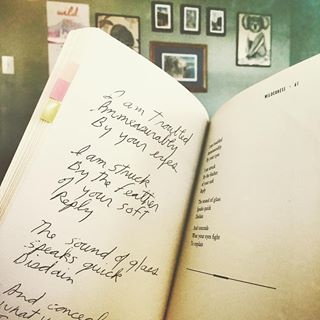 wild
I am troubled
Immeasurably
By your eyes
I am struck
By the feather
of your soft
Reply
The sound of glass
Speaks quick
Disdain
And conceal
what
WILDERNESS · 61
I am troubled
Immeasurably
By your eyes
I am struck
By the feather
of your soft
Reply
The sound of glass
Speaks quick
Disdain
And conceals
What your eyes fight
To explain